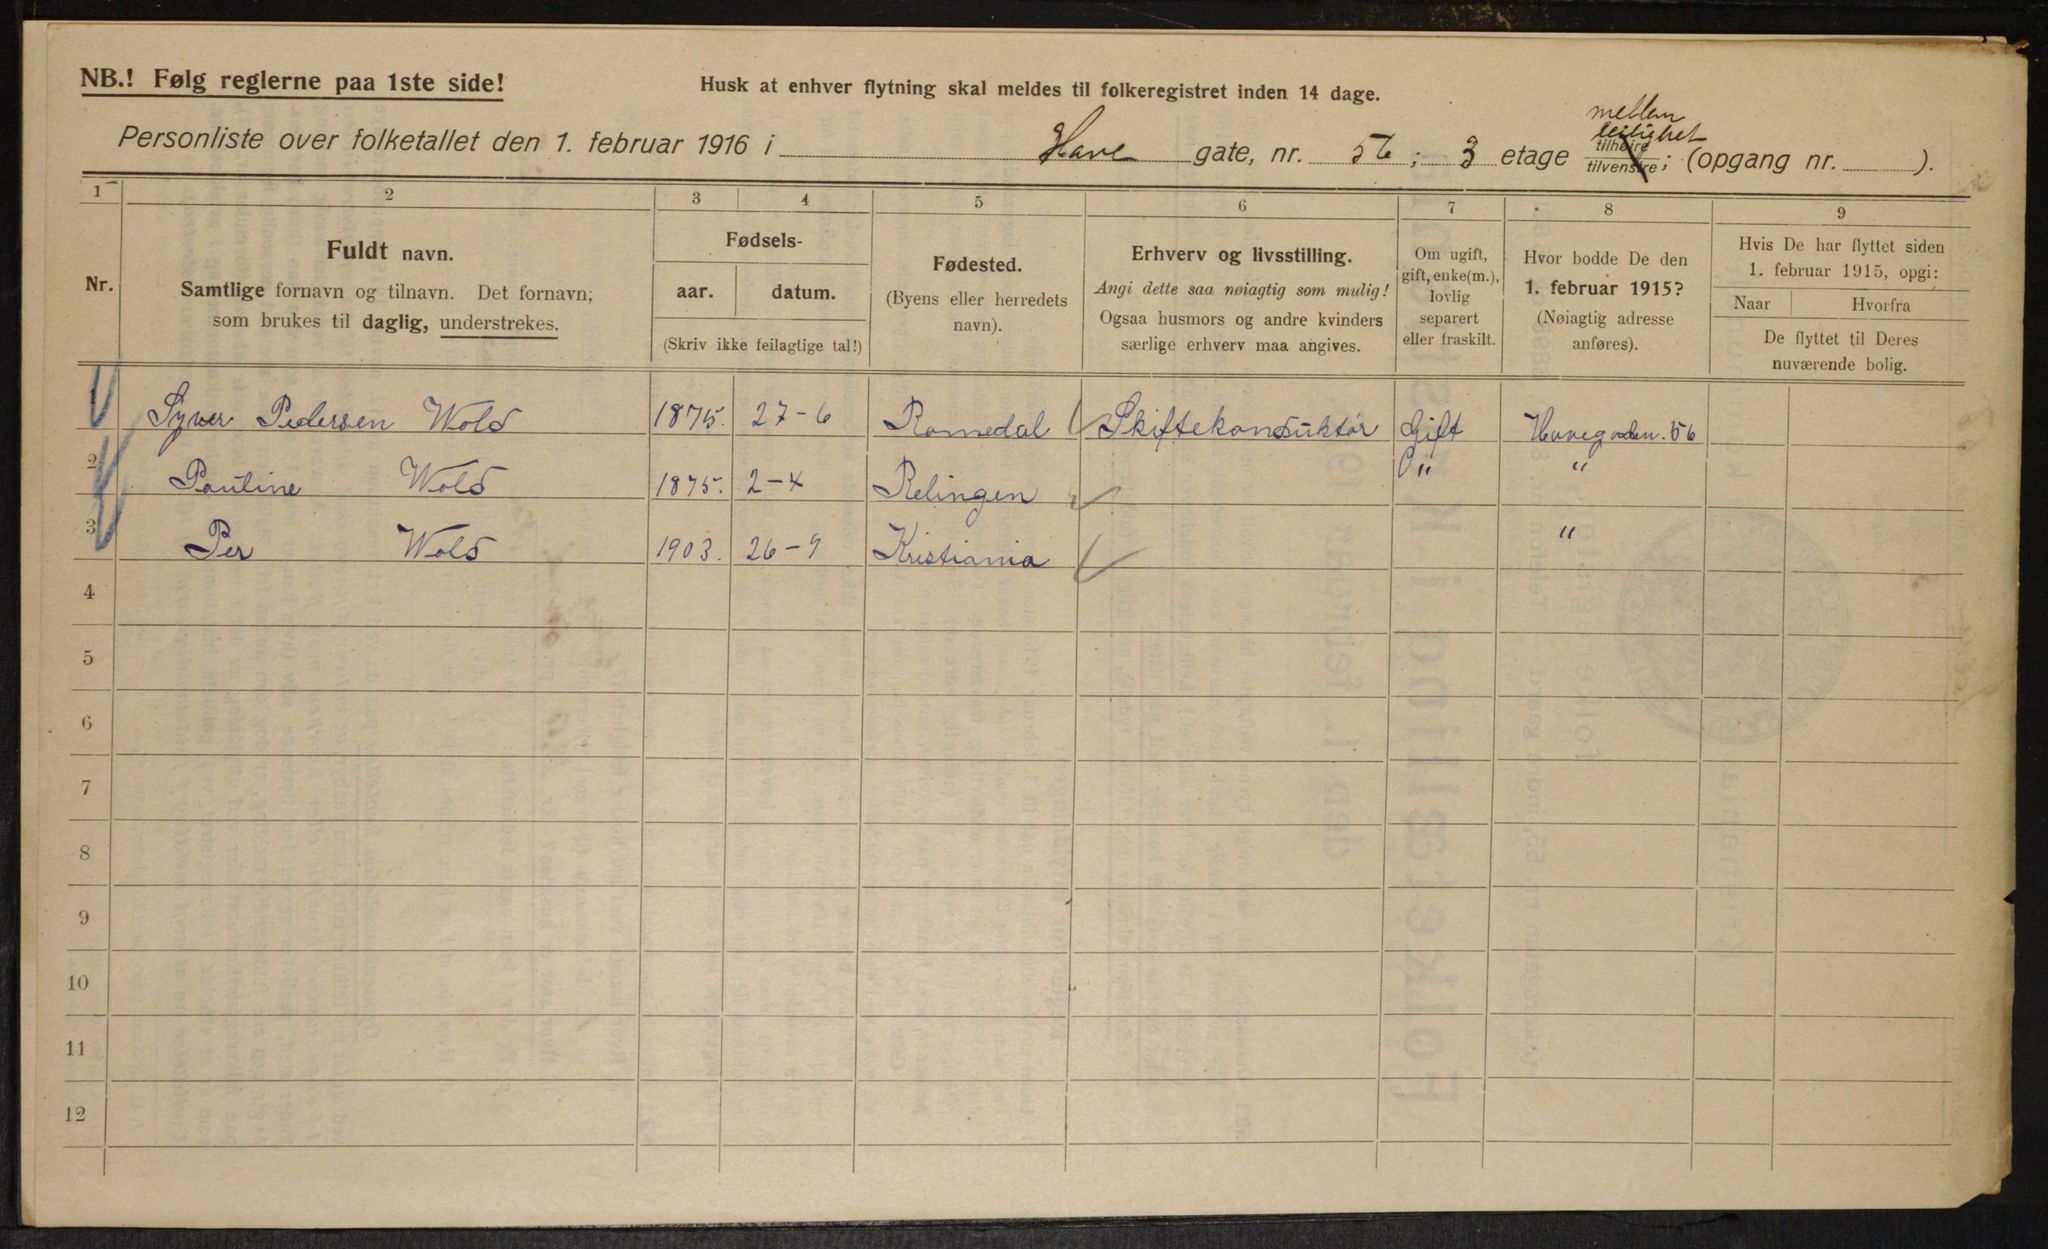 NB.! Følg reglerne paa 1ste side!
Husk at enhver flytning skal meldes til folkeregistret inden 14 dage.
mellem
leilighet
Personliste over folketallet den 1. februar 1916 i Have gate, nr. 56; 3 etage tilhøire tilvenstre; (opgang nr. ).
1 2 3 4 5 6 7 8 9
Nr.
Fuldt navn.
Samtlige fornavn og tilnavn. Det fornavn,
som brukes til daglig, understrekes.
Fødsels-
aar. datum.
(Skriv ikke feilagtige tal!)
Fødested.
(Byens eller herredets
navn).
Erhverv og livsstilling.
Angi dette saa nøiagtig som mulig!
Ogsaa husmors og andre kvinders
særlige erhverv maa angives.
Om ugift,
gift, enke(m.),
lovlig
separert
eller fraskilt.
Hvor bodde De den
1. februar 1915?
(Nøiagtig adresse
anføres).
Hvis De har flyttet siden
1. februar 1915, opgi:
Naar Hvorfra
De flyttet til Deres
nuværende bolig.
1 Syver Pedersen Wold 1875. 27-6 Romedal Skiftekonduktør Gift Havegaden. 56
2 Pauline Wold 1875. 2-4 Relingen " "
3 Per Wold 1903. 26-9 Kristiania "
4
5
6
7
8
9
10
11
12